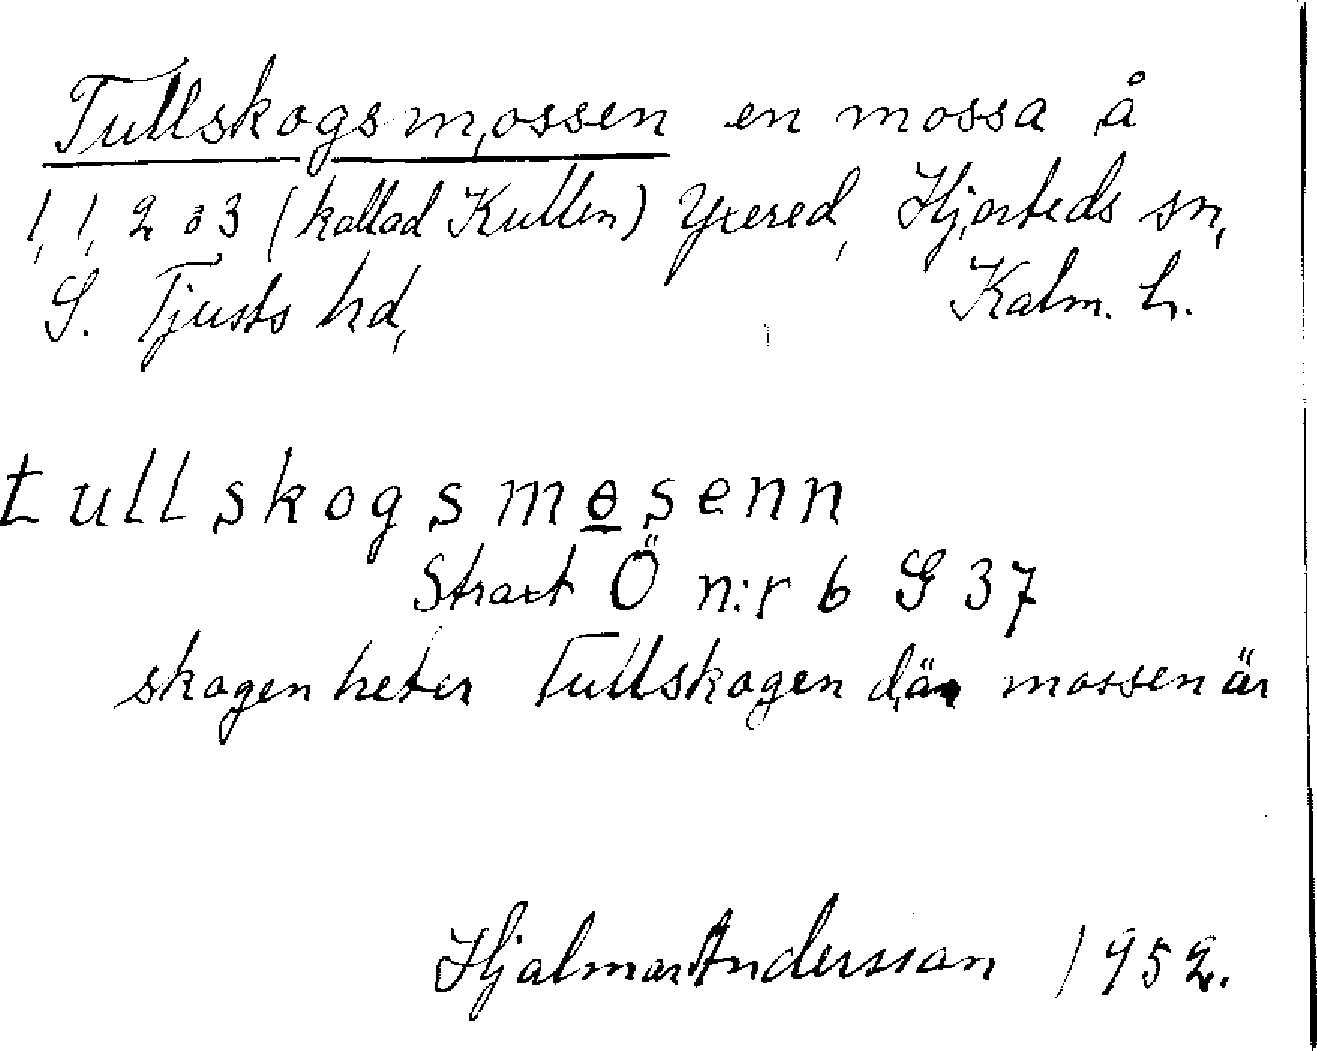 Tullskogsmossen en mossa å
1, 1, 2 o 3 (kallad Kullen) Yxered, Hjorteds sn,
S. Tjusts hd, Kalm. L.
tullskogsmosenn
Strax Ö n:r 6 S 37
skogen heter Tullskogen där mossen är
Hjalmar Andersson 1952.